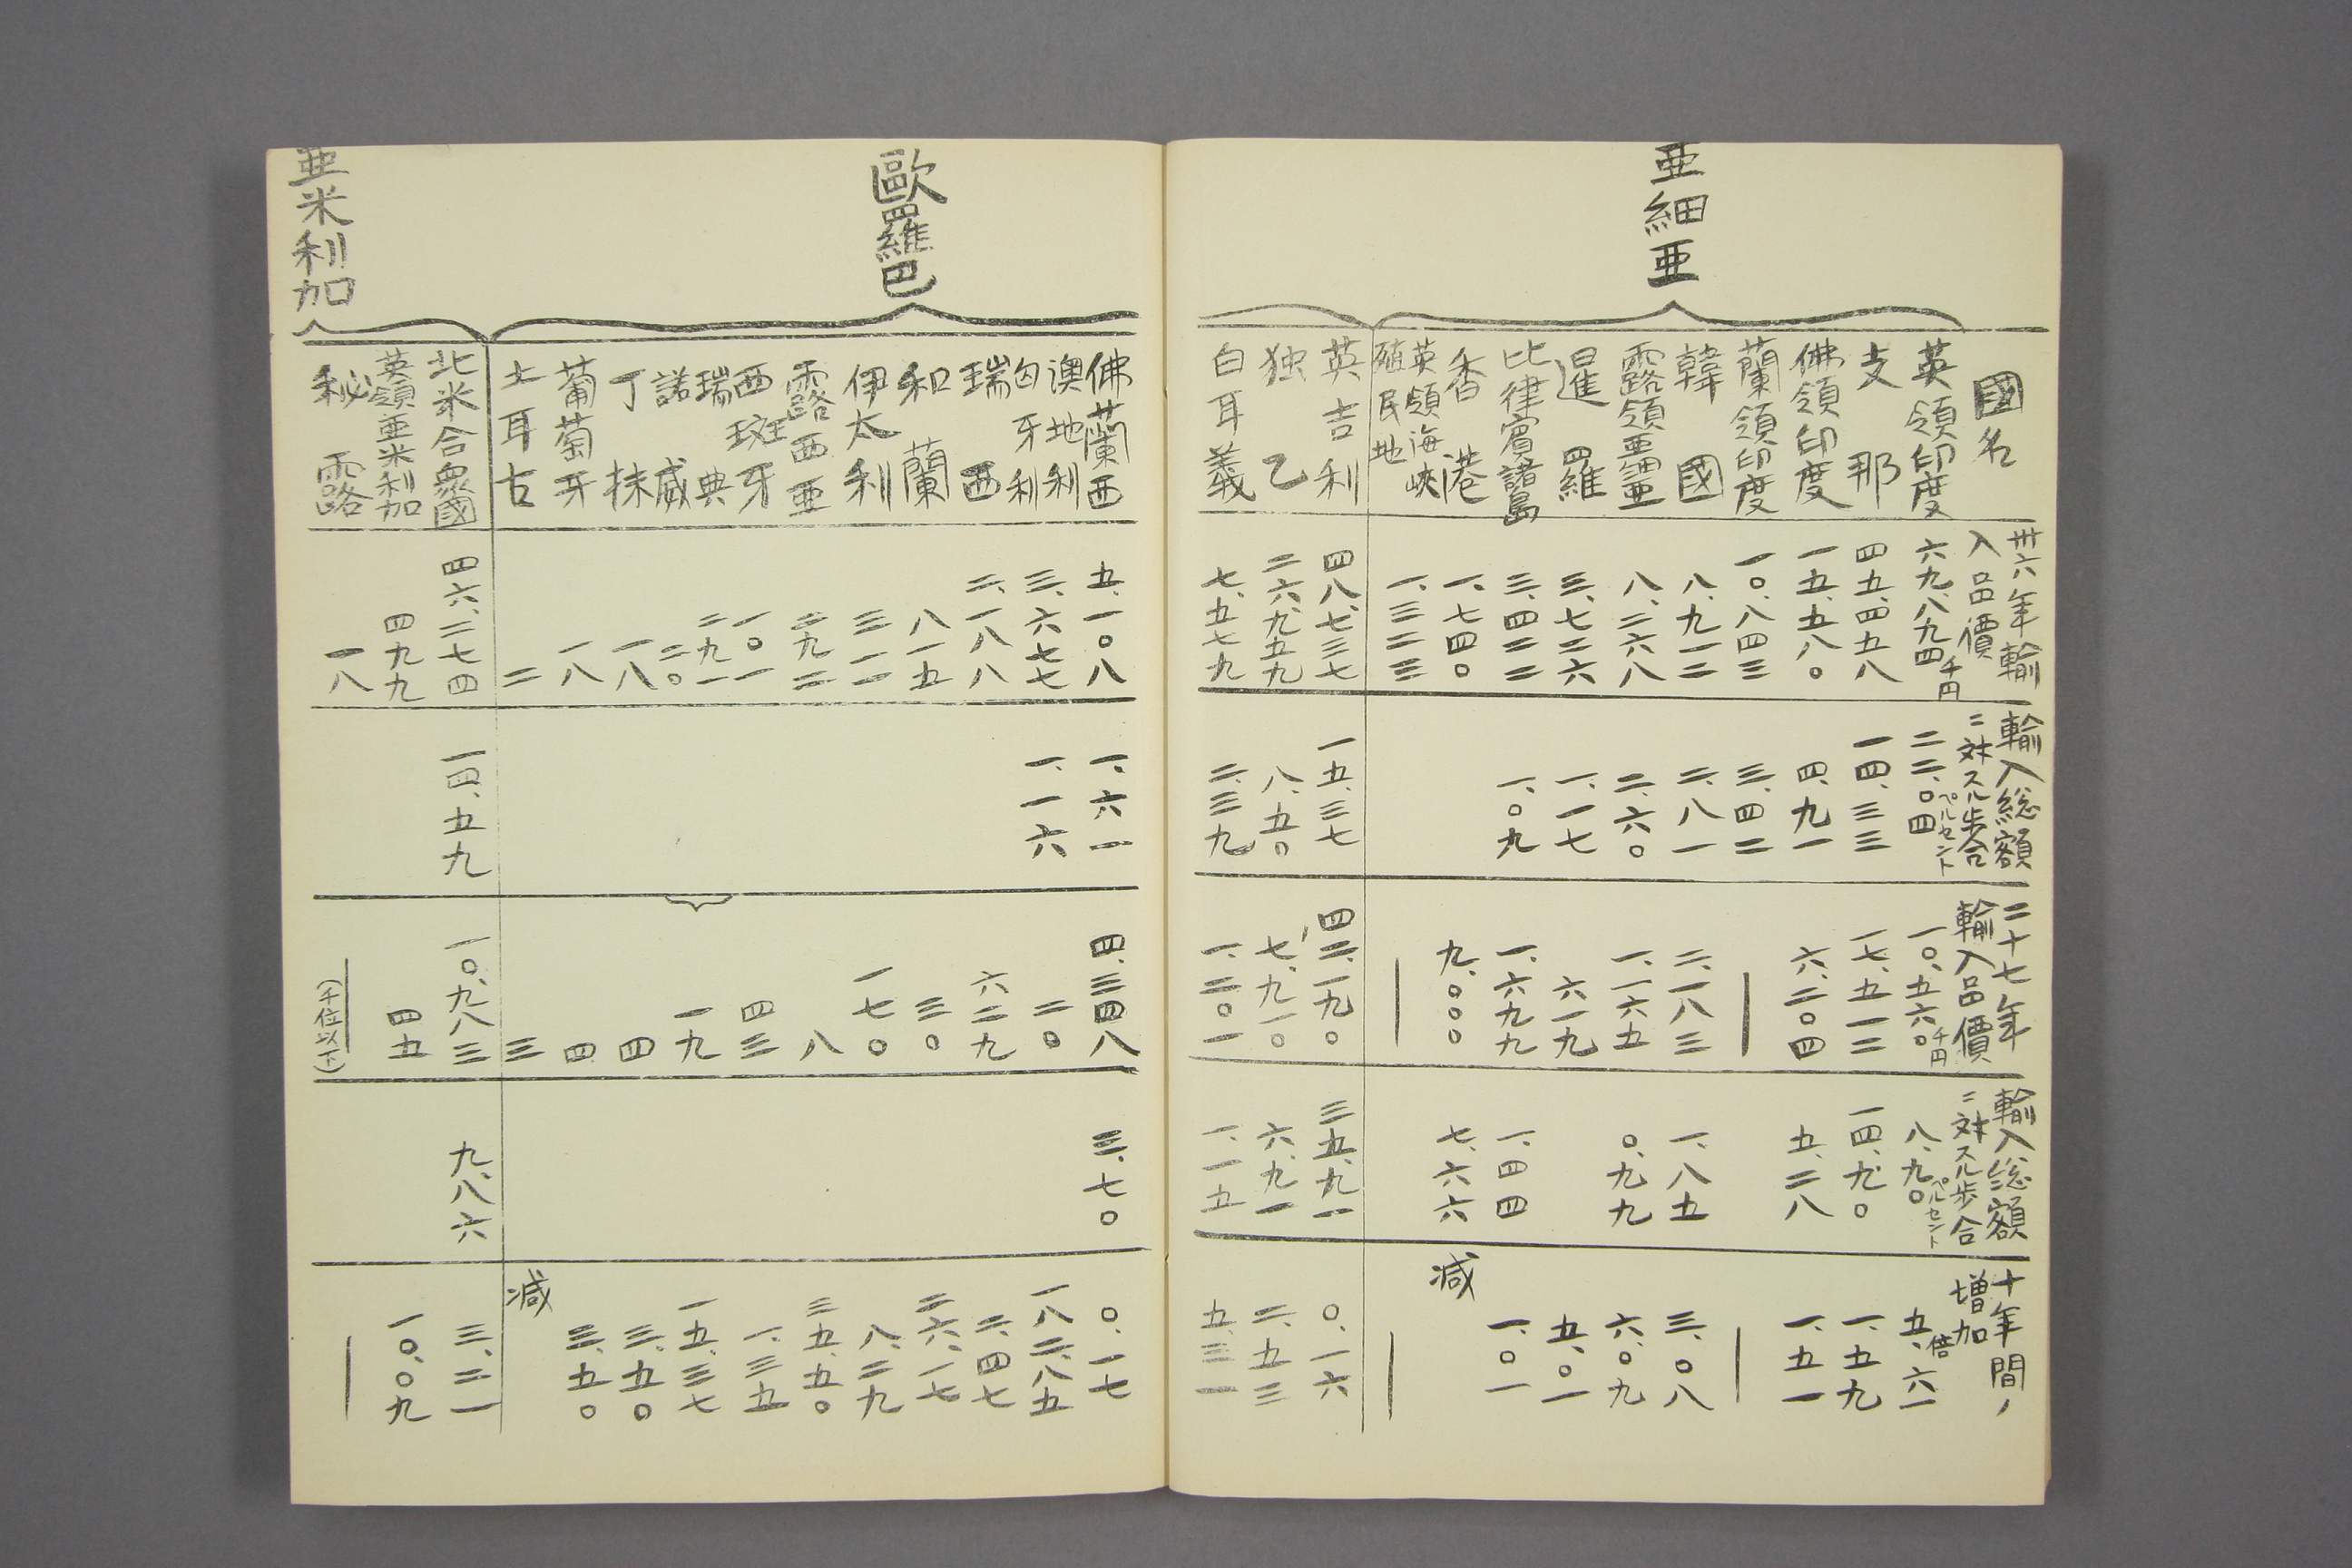 國名 卅六年輸入品價 輸入総額ニ対スル歩合 二十七年輸入品價 輸入総額ニ対スル歩合 十年間ノ増加
亜細亜
英領印度 六九、八九四千円 二二、〇四ペルセント 一〇、五六〇千円 八、九〇ペルセント 五、六一倍
支那 四五、四五八 一四、三三 一七、五一二 一四、九〇 一、五九
佛領印度 一五、五八〇 四、九一 六、二〇四 五、二八 一、五一
蘭領印度 一〇、八四三 三、四二 ― ―
韓國 八、九一二 二、八一 二、一八三 一、八五 三、〇八
露領亜細亜 八、二六八 二、六〇 一、一六五 〇、九九 六、〇九
暹羅 三、七二六 一、一七 六一九 五、〇一
比律賓諸島 三、四二二 一、〇九 一、六九九 一、四四 一、〇一
香港 一、七四〇 九、〇〇〇 七、六六 減
英領海峡殖民地 一、三二三 ― ―
歐羅巴
英吉利 四八、七三七 一五、三七 四二、一九〇 三五、九一 〇、一六
独乙 二六、九五九 八、五〇 七、九一〇 六、九一 二、五三
白耳義 七、五七九 二、三九 一、二〇一 一、一五 五、三一
佛蘭西 五、一〇八 一、六一 四、三四八 三、七〇 〇、一七
澳地利匈牙利 三、六七七 一、一六 二〇 一八二、八五
瑞西 二、一八八 六二九 二、四七
和蘭 八一五 三〇 二六、一七
伊太利 三一一 一七〇 八、二九
露西亜 二九二 八 三五、五〇
西班牙 一〇一 四三 一、三五
瑞典 二九一 一九 一五、三七
諾威 二〇
丁抹 一八 四 三、五〇
葡萄牙 一八 四 三、五〇
土耳古 二 三 減
亜米利加
北米合衆國 四六、二七四 一四、五九 一〇、九八三 九、八六 三、二一
英領亜米利加 四九九 四五 一〇、〇九
秘露 一八 ―(千位以下) ―